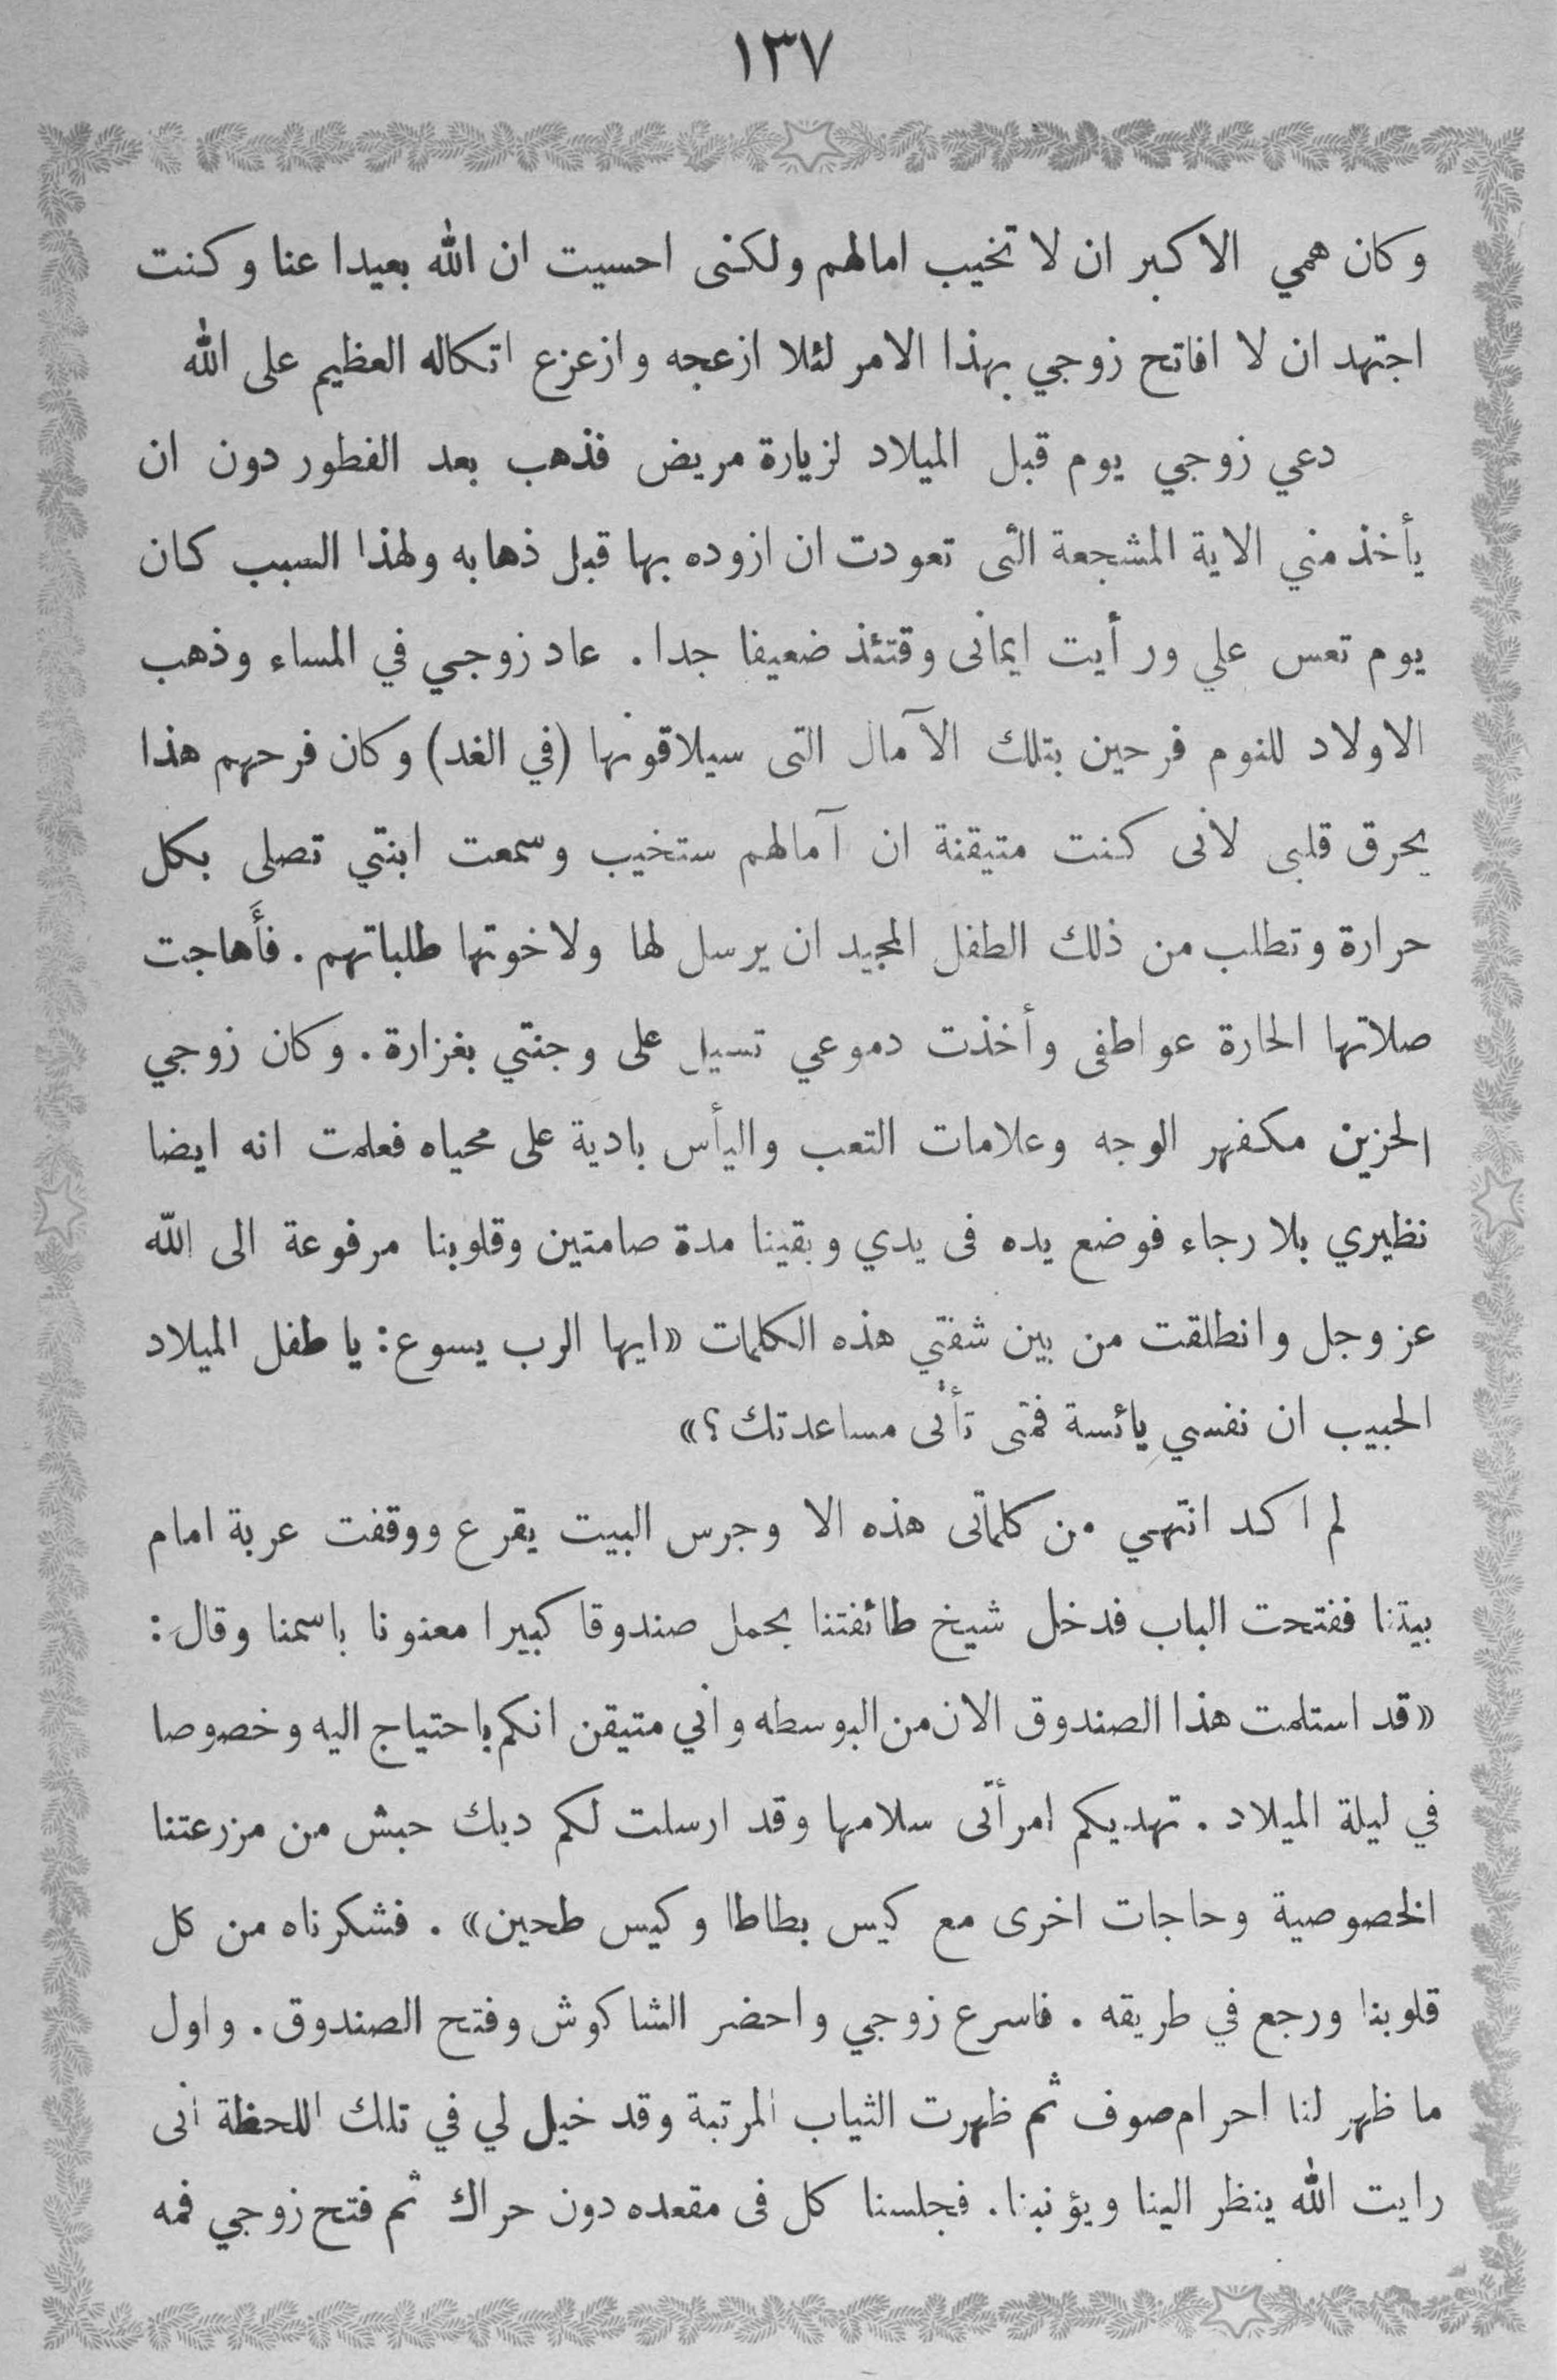 ١٣٧
وكان همي الاكبر ان لا تخيب امالهم ولكنى احسيت ان الله بعيدا عنا وكنت
اجتهد ان لا افاتح زوجي بهذا الامر لئلا ازعجه وازعزع اتكاله العظيم على الله
دعي زوجي يوم قبل الميلاد لزيارة مريض فذهب بعد الفطور دون ان
يأخذ مني الاية المشجعة التى تعودت ان ازوده بها قبل ذهابه ولهذا السبب كان
يوم تعس علي ورأيت ايمانى وقتئذ ضعيفا جدا. عاد زوجي في المساء وذهب
الاولاد للنوم فرحين بتلك الآمال التى سيلاقونها (في الغد) وكان فرحهم هذا
يحرق قلبى لانى كنت متيقنة ان آمالهم ستخيب وسمعت ابنتي تصلى بكل
حرارة وتطلب من ذلك الطفل المجيد ان يرسل لها ولاخوتها طلباتهم. فأَهاجت
صلاتها الحارة عواطفى وأخذت دموعي تسيل على وجنتي بغزارة. وكان زوجي
الحزين مكفهر الوجه وعلامات التعب واليأس بادية على محياه فعلمت انه ايضا
نظيري بلا رجاء فوضع يده فى يدي وبقينا مدة صامتين وقلوبنا مرفوعة الى الله
عز وجل وانطلقت من بين شفتي هذه الكلمات «ايها الرب يسوع: يا طفل الميلاد
الحبيب ان نفسي يائسة فمتى تأتى مساعدتك؟»
لم اكد انتهي من كلماتى هذه الا وجرس البيت يقرع ووقفت عربة امام
بيتنا ففتحت الباب فدخل شيخ طائفتنا بحمل صندوقا كبيرا معنونا باسمنا وقال:
«قد استلمت هذا الصندوق الان من البوسطه واني متيقن انكم باحتياج اليه وخصوصا
في ليلة الميلاد. تهديكم امرأتى سلامها وقد ارسلت لكم ديك حبش من مزرعتنا
الخصوصية وحاجات اخرى مع كيس بطاطا وكيس طحين». فشكرناه من كل
قلوبنا ورجع في طريقه. فاسرع زوجي واحضر الشاكوش وفتح الصندوق. واول
ما ظهر لنا احرام صوف ثم ظهرت الثياب المرتبة وقد خيل لي في تلك اللحظة انى
رايت الله ينظر الينا ويؤنبنا. فجلسنا كل فى مقعده دون حراك ثم فتح زوجي فمه